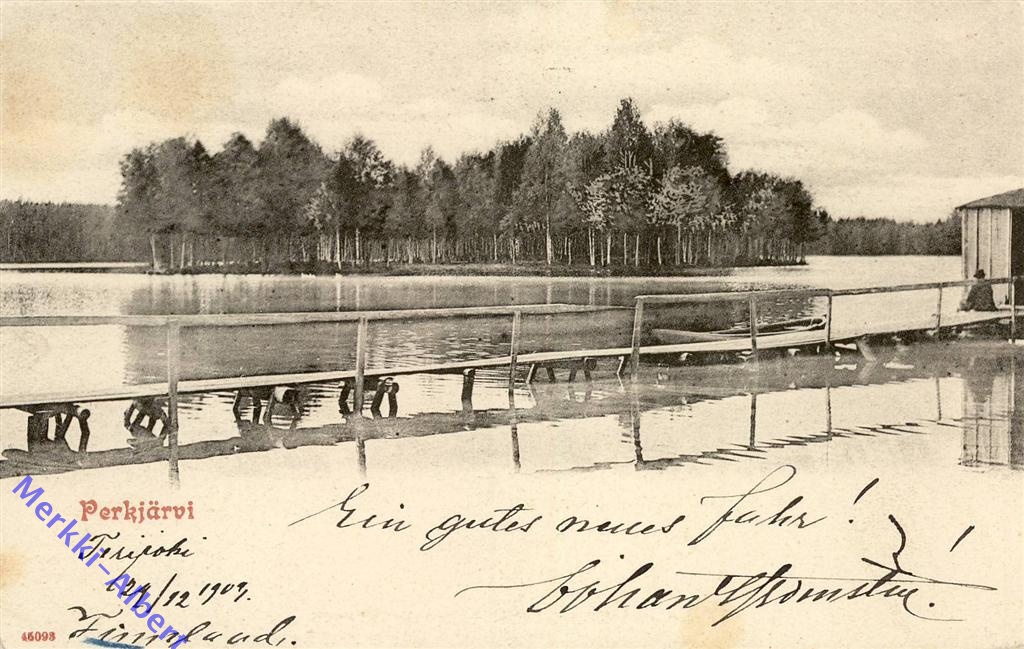 Perkjärvi
Ein gutes neues Jahr!
Terijoki
29/12 1902.
Johan
Finnland.
46093
Merkki-Albert